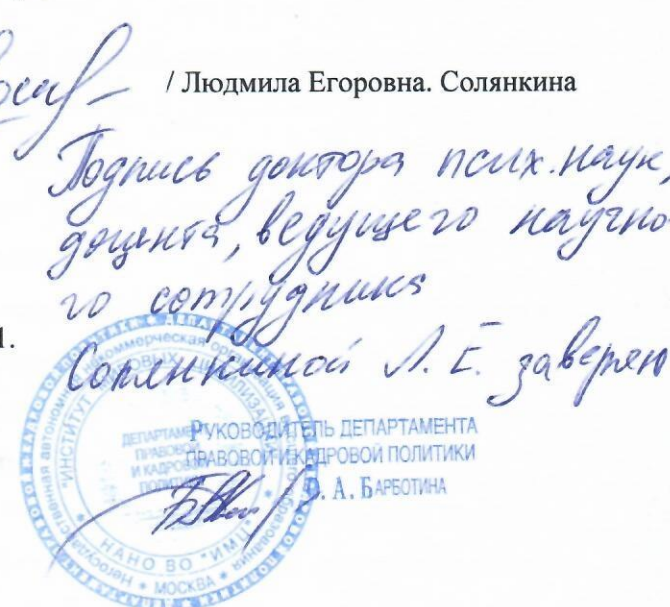 / Людмила Егоровна. Солянкина
Подпись доктора псих. наук,
доцента, ведущего научно-
го сотрудника
1.
Солянкиной Л. Е. заверяю
РУКОВОДИТЕЛЬ ДЕПАРТАМЕНТА
ПРАВОВОЙ И КАДРОВОЙ ПОЛИТИКИ
А. БАРБОТИНА
ДЕПАРТАМЕНТ
ПРАВОВОЙ
И КАДРОВОЙ
ПОЛИТИКИ
НАНО ВО "ИМЦ"
МОСКВА